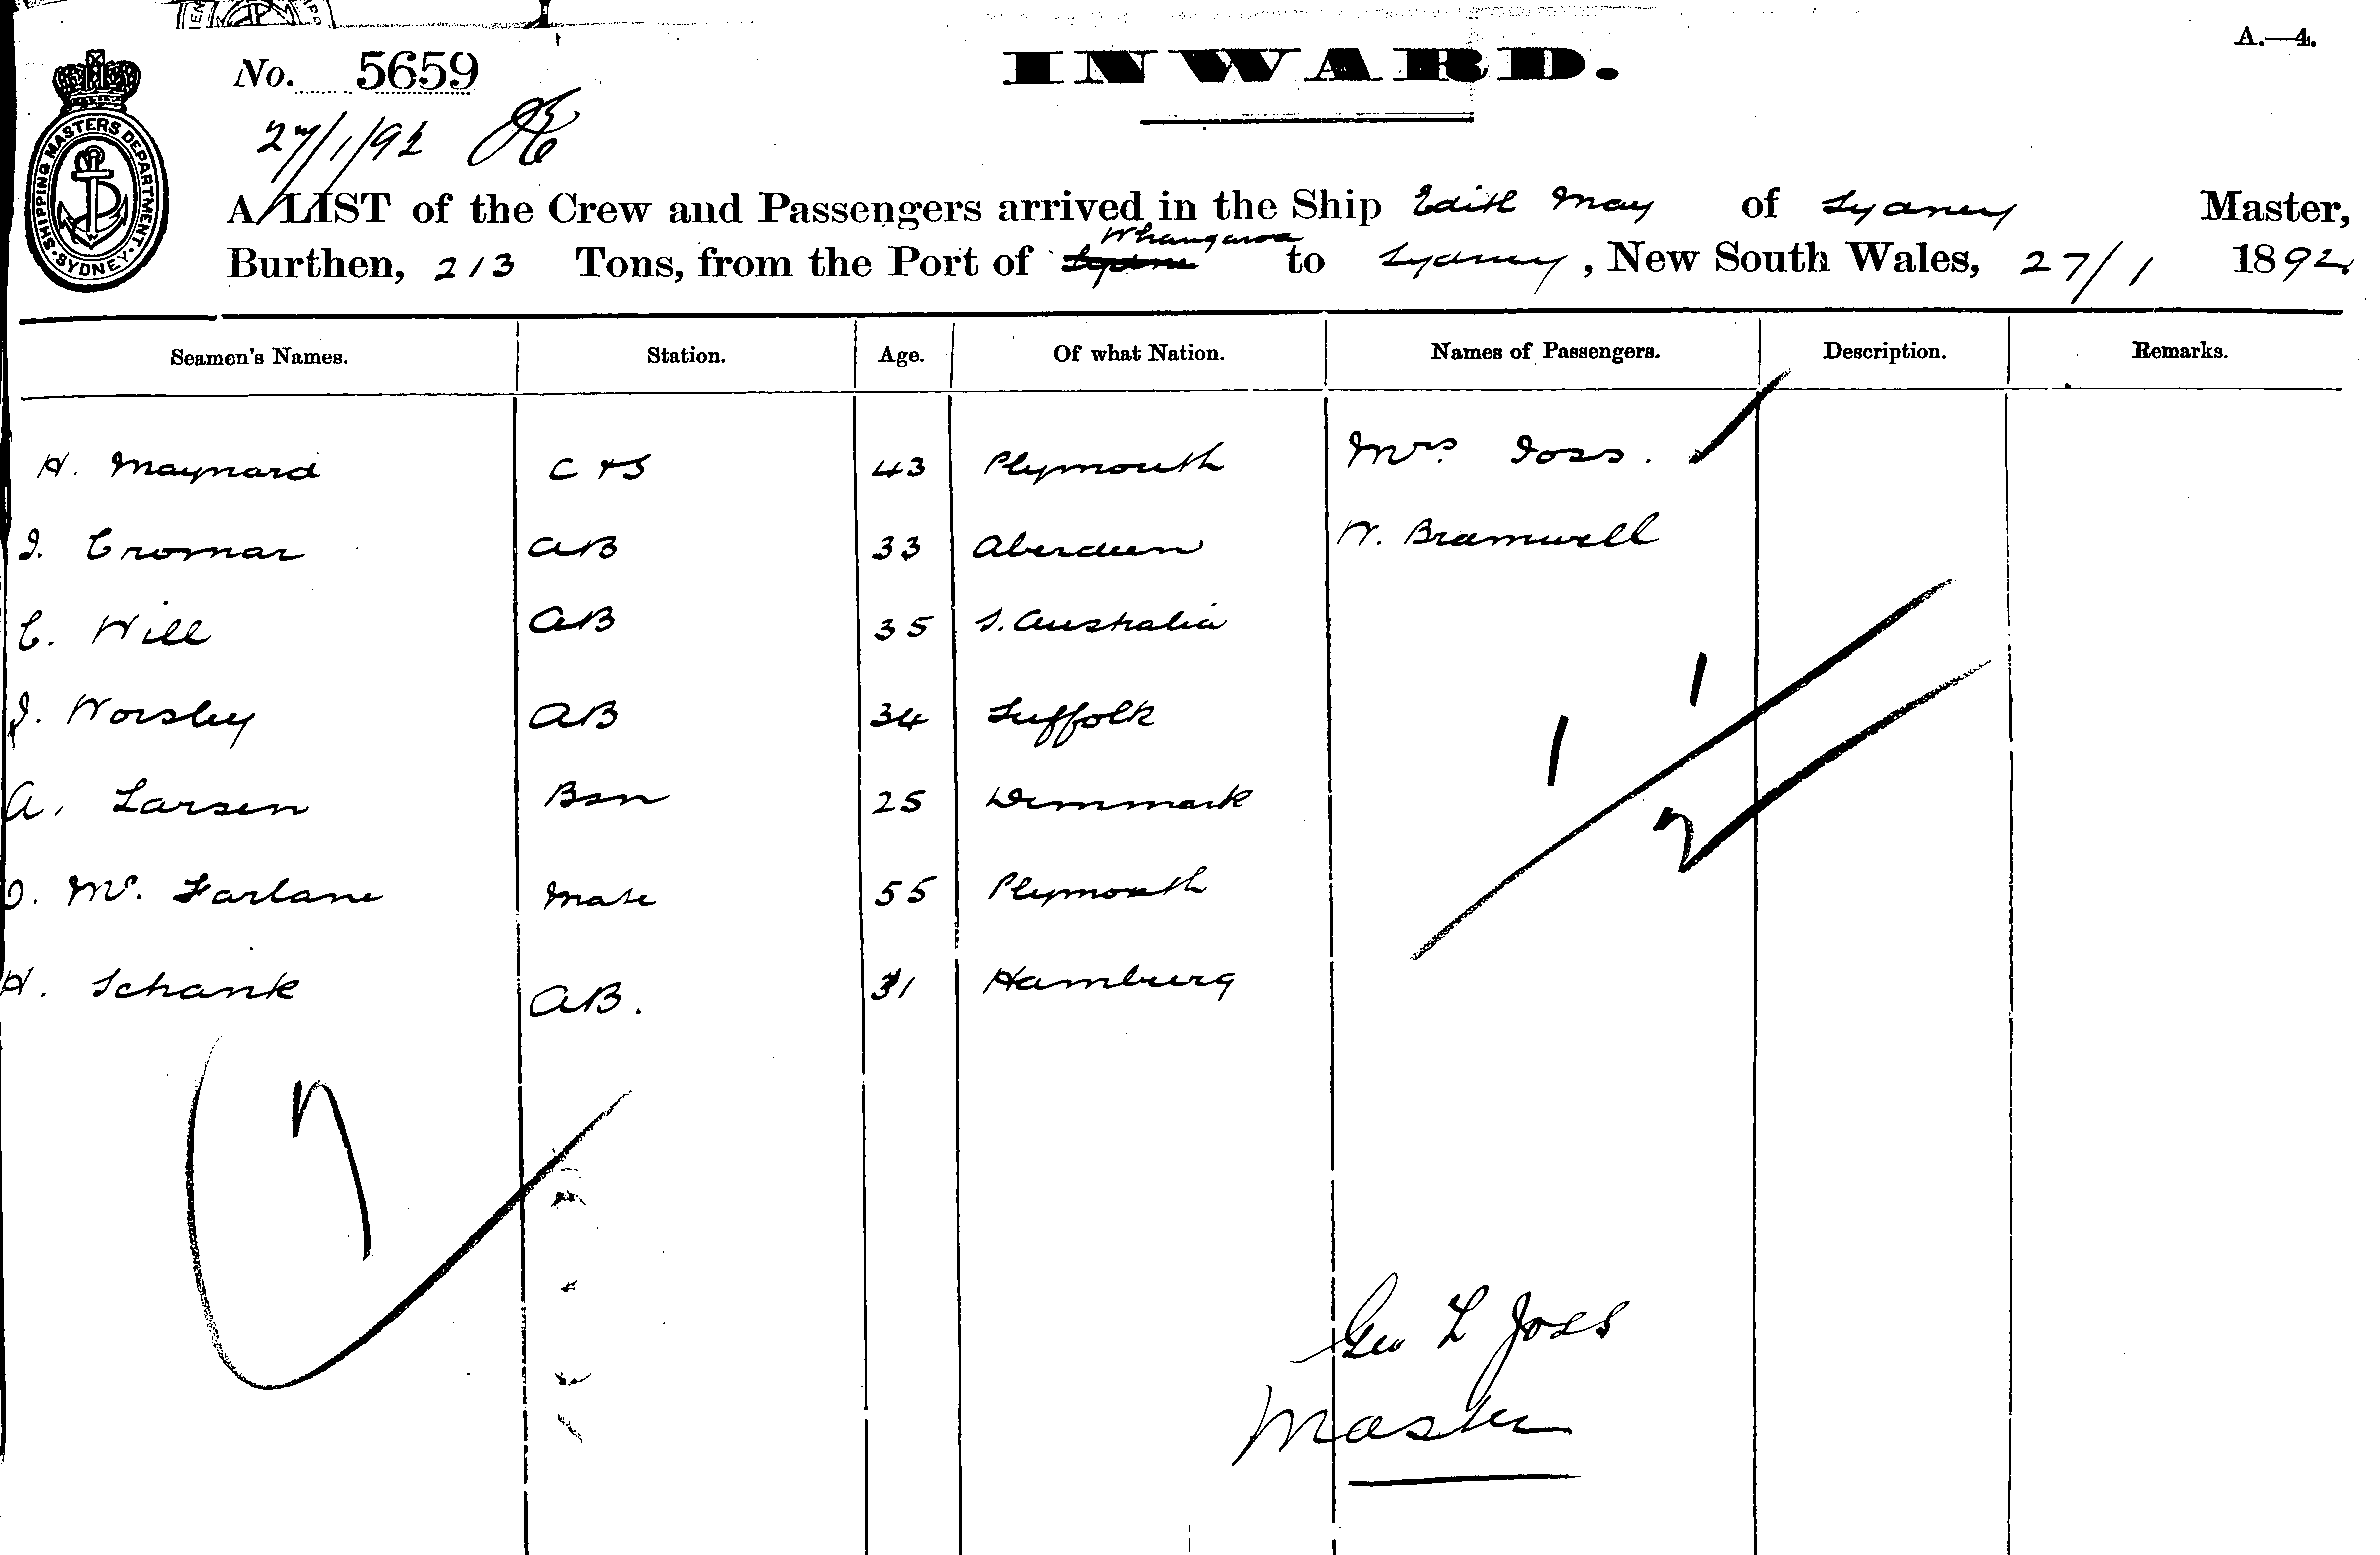 A.—4.
No. 5659
INWARD.
27/1/92
SHIPPING MASTERS DEPARTMENT. SYDNEY.
A LIST of the Crew and Passengers arrived in the Ship Edith May of Sydney Master,
Whangaroa
Burthen, 213 Tons, from the Port of Sydne to Sydney, New South Wales, 27/1 1892
Seamen's Names. Station. Age. Of what Nation. Names of Passengers. Description. Remarks.
H. Maynard C & S 43 Plymouth Mrs Joss.
J. Cromar AB 33 Aberdeen W. Bramwell
C. Will AB 35 S. Australia
J. Worsley AB 34 Suffolk
A. Larsen Bsn 25 Denmark
D. Mc. Farlane Mate 55 Plymouth
H. Schank AB. 31 Hamburg
1 1
2
7
Geo L Joss
Master